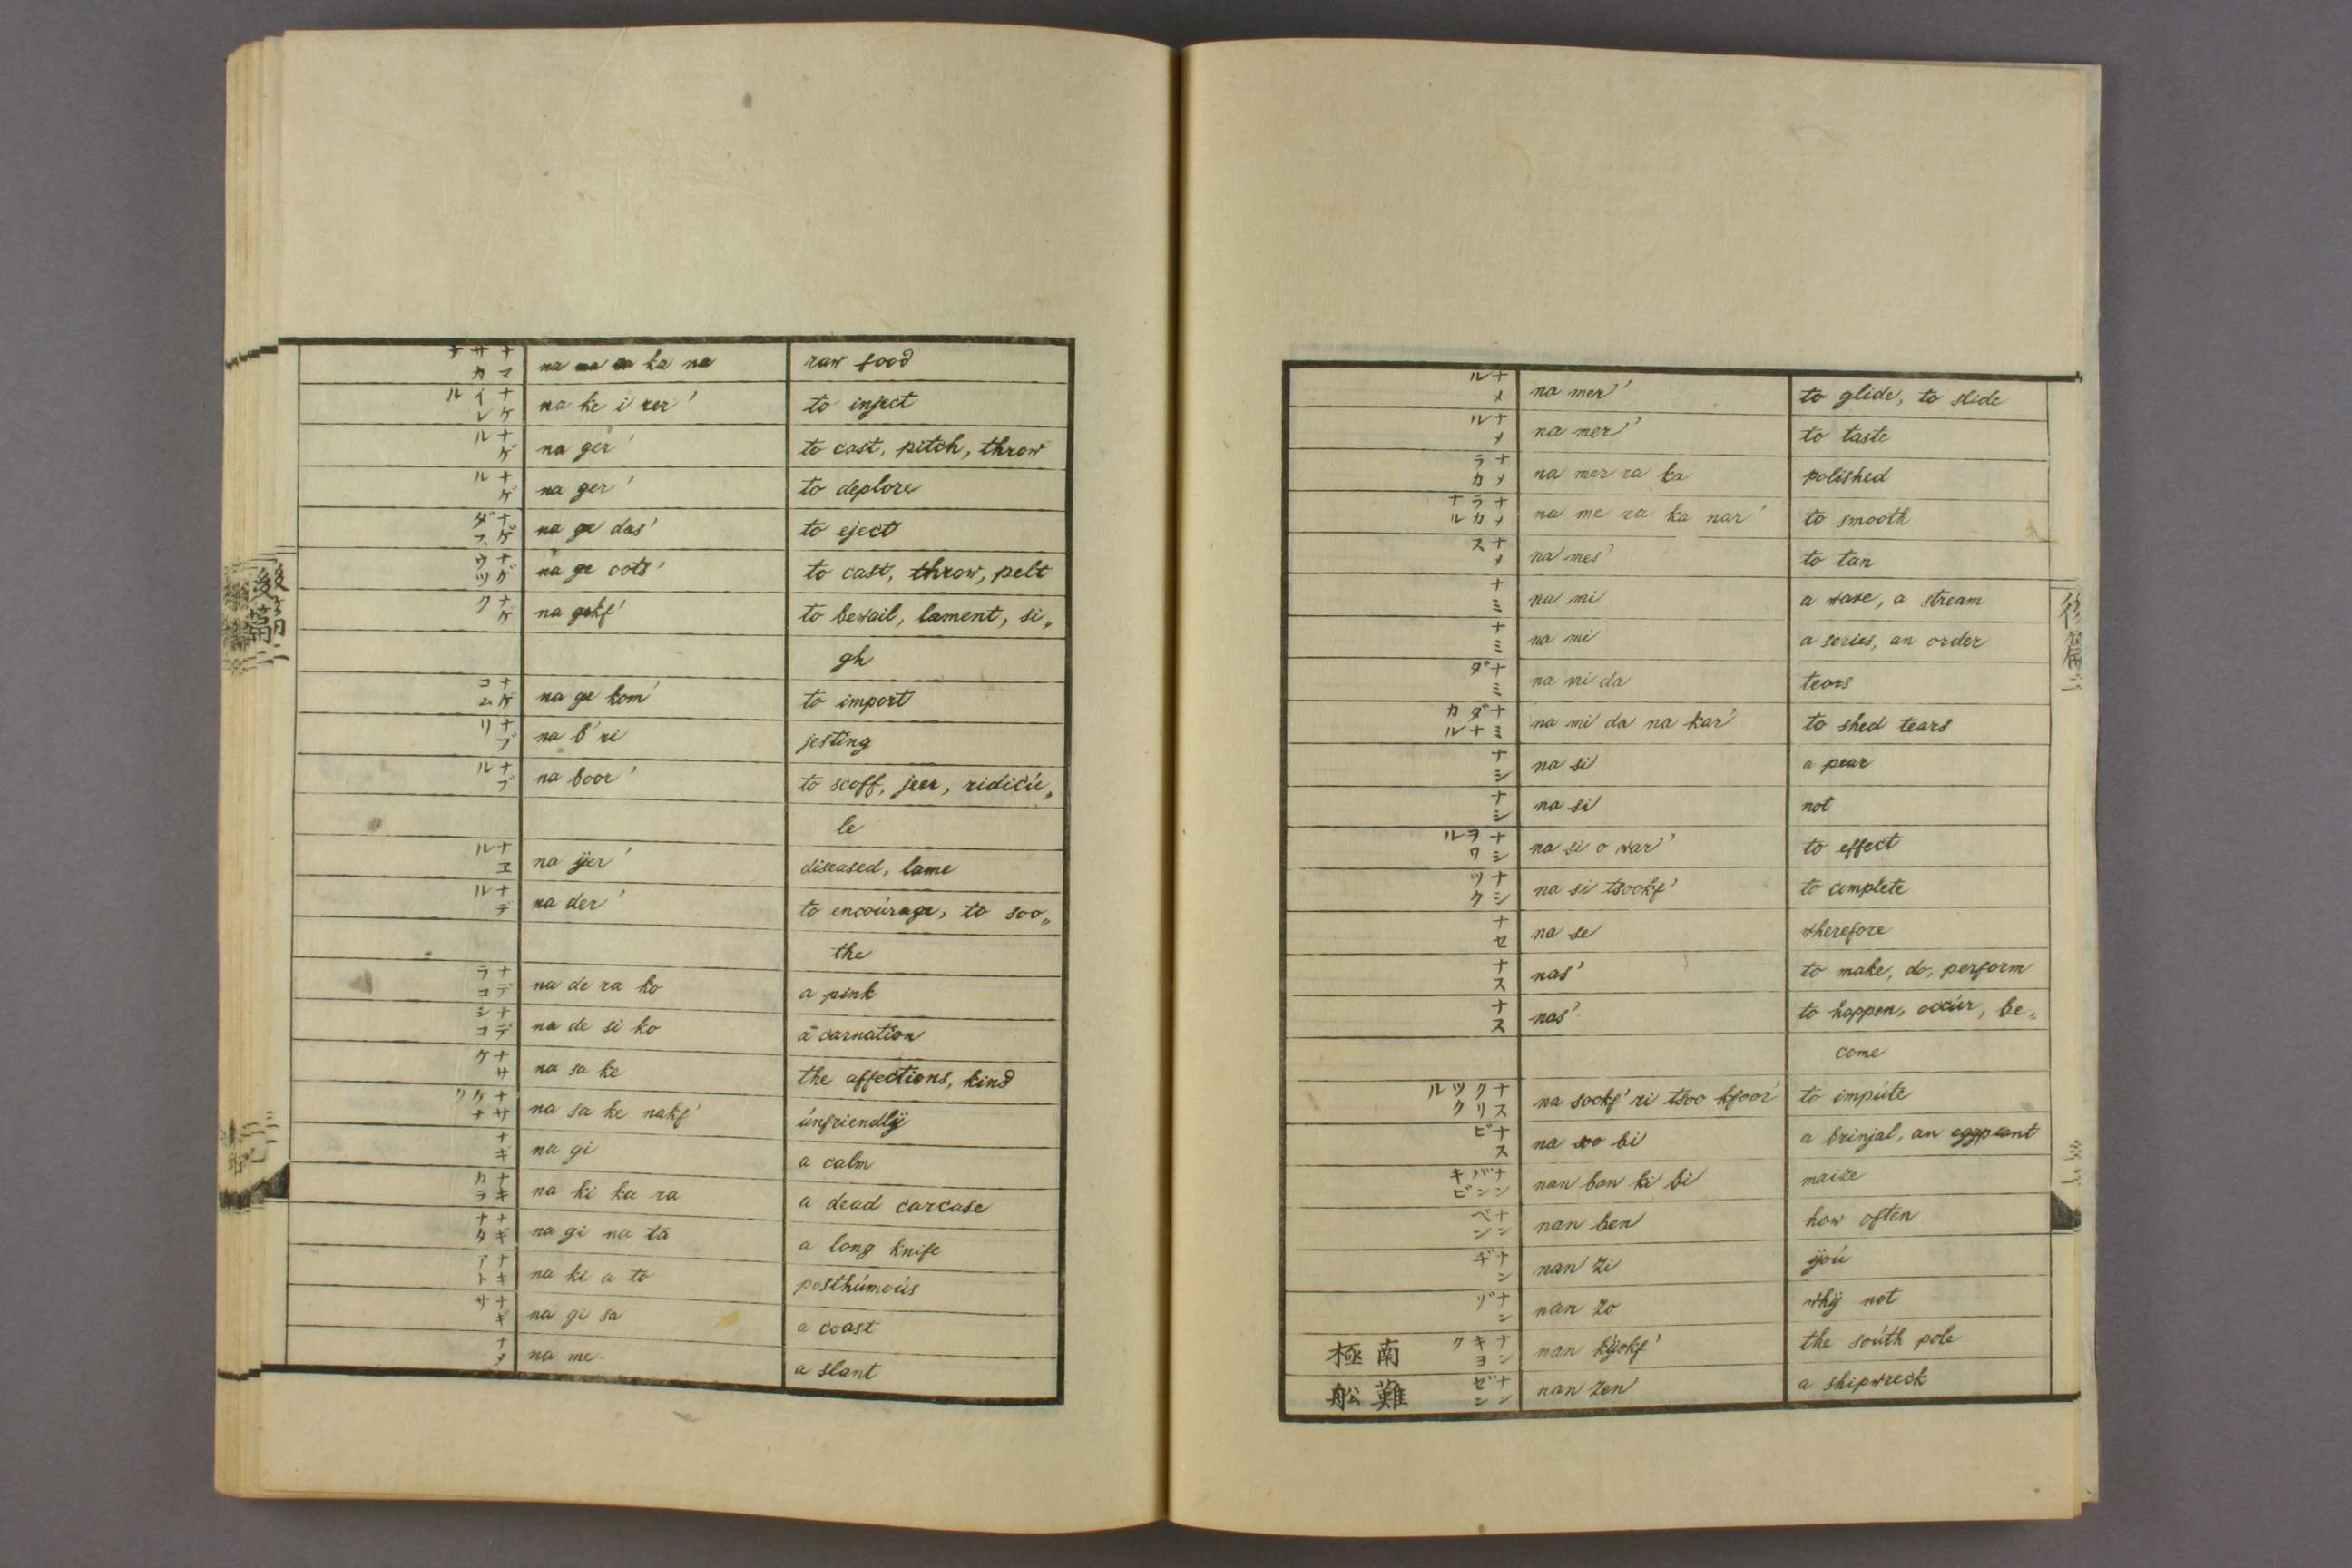 ナマサカナ na ma sa ka na raw food
ナケイレル na ke i rer' to inject
ナゲル na ger' to cast, pitch, throw
ナゲル na ger' to deplore
ナゲダス na ge das' to eject
ナゲウツ na ge oots' to cast, throw, pelt
ナゲク na gekf' to bewail, lament, si„
gh
ナゲコム na ge kom' to import
ナブリ na b'ri jesting
ナブル na boor' to scoff, jeer, ridicú„
le
ナヱル na ijer' diseased, lame
ナデル na der' to encoúrage, to soo„
the
ナデラコ na de ra ko a pink
ナデシコ na de si ko a carnation
ナサケ na sa ke the affections, kind
ナサケナク na sa ke nakf' únfriendlij
ナギ na gi a calm
ナキカラ na ki ka ra a dead carcase
ナギナタ na gi na ta a long knife
ナキアト na ki a to posthúmoús
ナギサ na gi sa a coast
ナメ na me a slant
後篇
ナメル na mer' to glide, to slide
ナメル na mer' to taste
ナメラカ na mer ra ka polished
ナメラカナル na me ra ka nar' to smooth
ナメス na mes' to tan
ナミ na mi a wave, a stream
ナミ na mi a series, an order
ナミダ na mi da tears
ナミダナカル na mi da na kar' to shed tears
ナシ na si a pear
ナシ na si not
ナシヲワル na si o war' to effect
ナシツク na si tsookf' to complete
ナセ na se wherefore
ナス nas' to make, do, perform
ナス nas' to happen, occúr, be„
come
ナスクリツクル na sookf' ri tsoo kfoor' to impúte
ナスビ na soo bi a brinjal, an eggpeant
ナンバンキビ nan ban ki bi maize
ナンベン nan ben how often
ナンヂ nan zi ijoú
ナンゾ nan zo whij not
南極 ナンキヨク nan kijokf' the soúth pole
難舩 ナンゼン nan zen a shipwreck
後篇